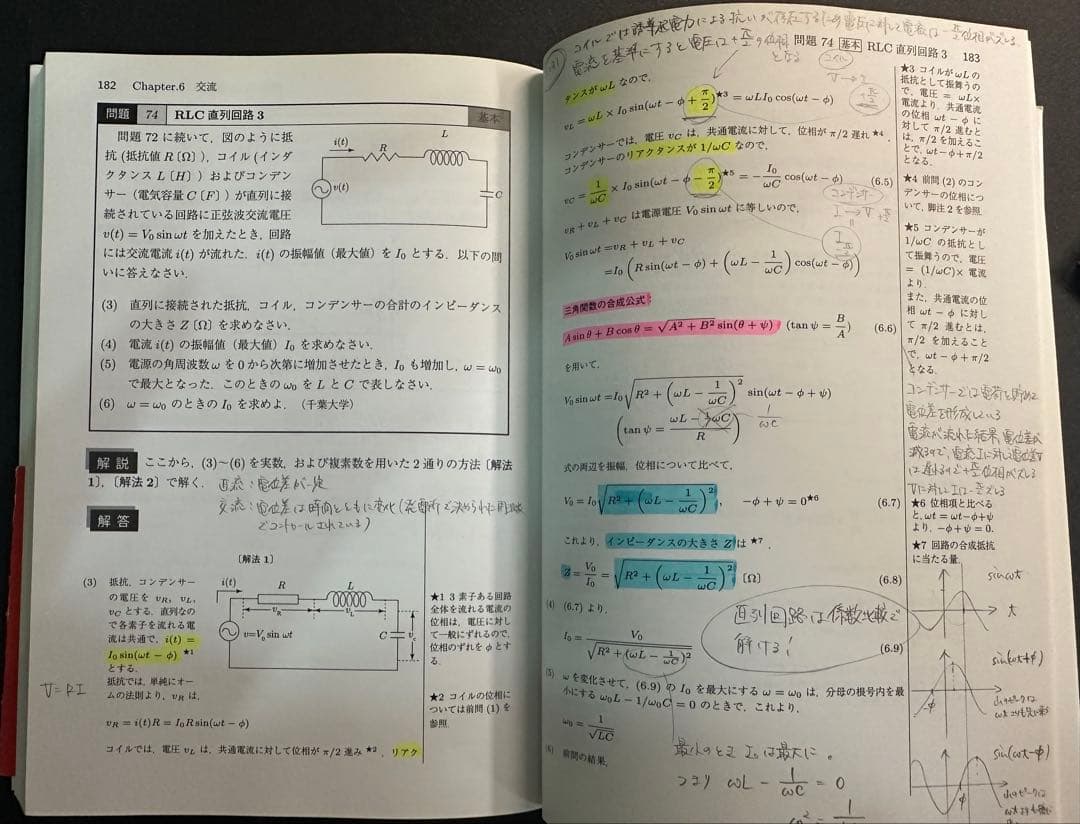 182 Chapter.6 交流
問題 74 RLC 直列回路 3 基本
問題 72 に続いて，図のように抵
抗 (抵抗値 R〔Ω〕)，コイル (インダ
クタンス L〔H〕) およびコンデン
サー (電気容量 C〔F〕) が直列に接
続されている回路に正弦波交流電圧
v(t) = V₀ sin ωt を加えたとき，回路
には交流電流 i(t) が流れた．i(t) の振幅値（最大値）を I₀ とする．以下の問
いに答えなさい．
i(t) R L
v(t) C
(3) 直列に接続された抵抗，コイル，コンデンサーの合計のインピーダンス
の大きさ Z〔Ω〕を求めなさい．
(4) 電流 i(t) の振幅値（最大値）I₀ を求めなさい．
(5) 電源の角周波数 ω を 0 から次第に増加させたとき，I₀ も増加し，ω = ω₀
で最大となった．このときの ω₀ を L と C で表しなさい．
(6) ω = ω₀ のときの I₀ を求めよ．（千葉大学）
解 説 ここから，(3)〜(6) を実数，および複素数を用いた 2 通りの方法〔解法
1〕,〔解法 2〕で解く．
直流：電位差が一定
交流：電位差は時間とともに変化(発電所で決められた周波数
でコントロールされている)
解 答
〔解法 1〕
(3) 抵抗，コンデンサー
の電圧を vR, vL,
vC とする．直列なの
で各素子を流れる電
流は共通で，i(t) =
I₀ sin(ωt − φ) ★1
とする．
抵抗では，単純にオー
ムの法則より，vR は，
V=RI
i(t) R L
vR vL
v=V₀ sin ωt C vc
vR = i(t)R = I₀R sin(ωt − φ)
コイルでは，電圧 vL は，共通電流に対して位相が π/2 進み ★2，リアク
★1 3 素子ある回路
全体を流れる電流の
位相は，電圧に対し
て一般にずれるので，
位相のずれを φ とす
る．
★2 コイルの位相に
ついては前問 (1) を
参照．
コイルでは誘導起電力による抗いが存在するため電圧に対して電流は -π/2 位相がズレる
電流を基準にすると電圧は +π/2 の位相
となる
問題 74 基本 RLC 直列回路 3 183
タンスが ωL なので，
vL = ωL × I₀ sin(ωt − φ + π/2) ★3 = ωLI₀ cos(ωt − φ)
コンデンサーでは，電圧 vC は，共通電流に対して，位相が π/2 遅れ ★4，
コンデンサーのリアクタンスが 1/ωC なので，
vC = 1/ωC × I₀ sin(ωt − φ − π/2) ★5 = − I₀/ωC cos(ωt − φ) (6.5)
vR + vL + vC は電源電圧 V₀ sin ωt に等しいので，
V₀ sin ωt = vR + vL + vC
= I₀ ( R sin(ωt − φ) + ( ωL − 1/ωC ) cos(ωt − φ) )
コイル
+π/2
コンデンサ
三角関数の合成公式
A sin θ + B cos θ = √(A² + B²) sin(θ + ψ) (tan ψ = B/A) (6.6)
を用いて，
V₀ sin ωt = I₀ √(R² + (ωL − 1/ωC)²) sin(ωt − φ + ψ)
( tan ψ = (ωL − 1/ωC)/R ) 1/ωC
式の両辺を振幅，位相について比べて，
V₀ = I₀ √(R² + (ωL − 1/ωC)²), −φ + ψ = 0 ★6 (6.7)
これより，インピーダンスの大きさ Z は ★7，
Z = V₀/I₀ = √(R² + (ωL − 1/ωC)²) 〔Ω〕 (6.8)
(4) (6.7) より，
I₀ = V₀/√(R² + (ωL − 1/ωC)²) (6.9)
直列回路は係数比較で
解ける！
(5) ω を変化させて，(6.9) の I₀ を最大にする ω = ω₀ は，分母の根号内を最
小にする ω₀L − 1/ω₀C = 0 のときで，これより，
ω₀ = 1/√LC
(6) 前問の結果，
最小のとき I₀ は最大に。
つまり ωL − 1/ωC = 0
★3 コイルが ωL の
抵抗として振舞うの
で，電圧 = ωL×
電流より，共通電流
の位相 ωt − φ に
対して π/2 進むと
は，π/2 を加えるこ
とで，ωt − φ + π/2
となる．
★4 前問 (2) のコン
デンサーの位相につ
いて，脚注 2 を参照．
★5 コンデンサーが
1/ωC の抵抗とし
て振舞うので，電圧
= (1/ωC)× 電流
より．
また，共通電流の位
相 ωt − φ に対し
て π/2 進むとは，
π/2 を加えること
で，ωt − φ + π/2
となる．
コンデンサーでは電荷を貯めて
電位差を形成している
電流が流れた結果，電位差が
★6 位相項と比べる
と，ωt = ωt−φ+ψ
より，−φ+ψ = 0．
★7 回路の合成抵抗
に当たる量．
sin ωt
t
sin(ωt+φ)
-φ
sin(ωt-φ)
φ